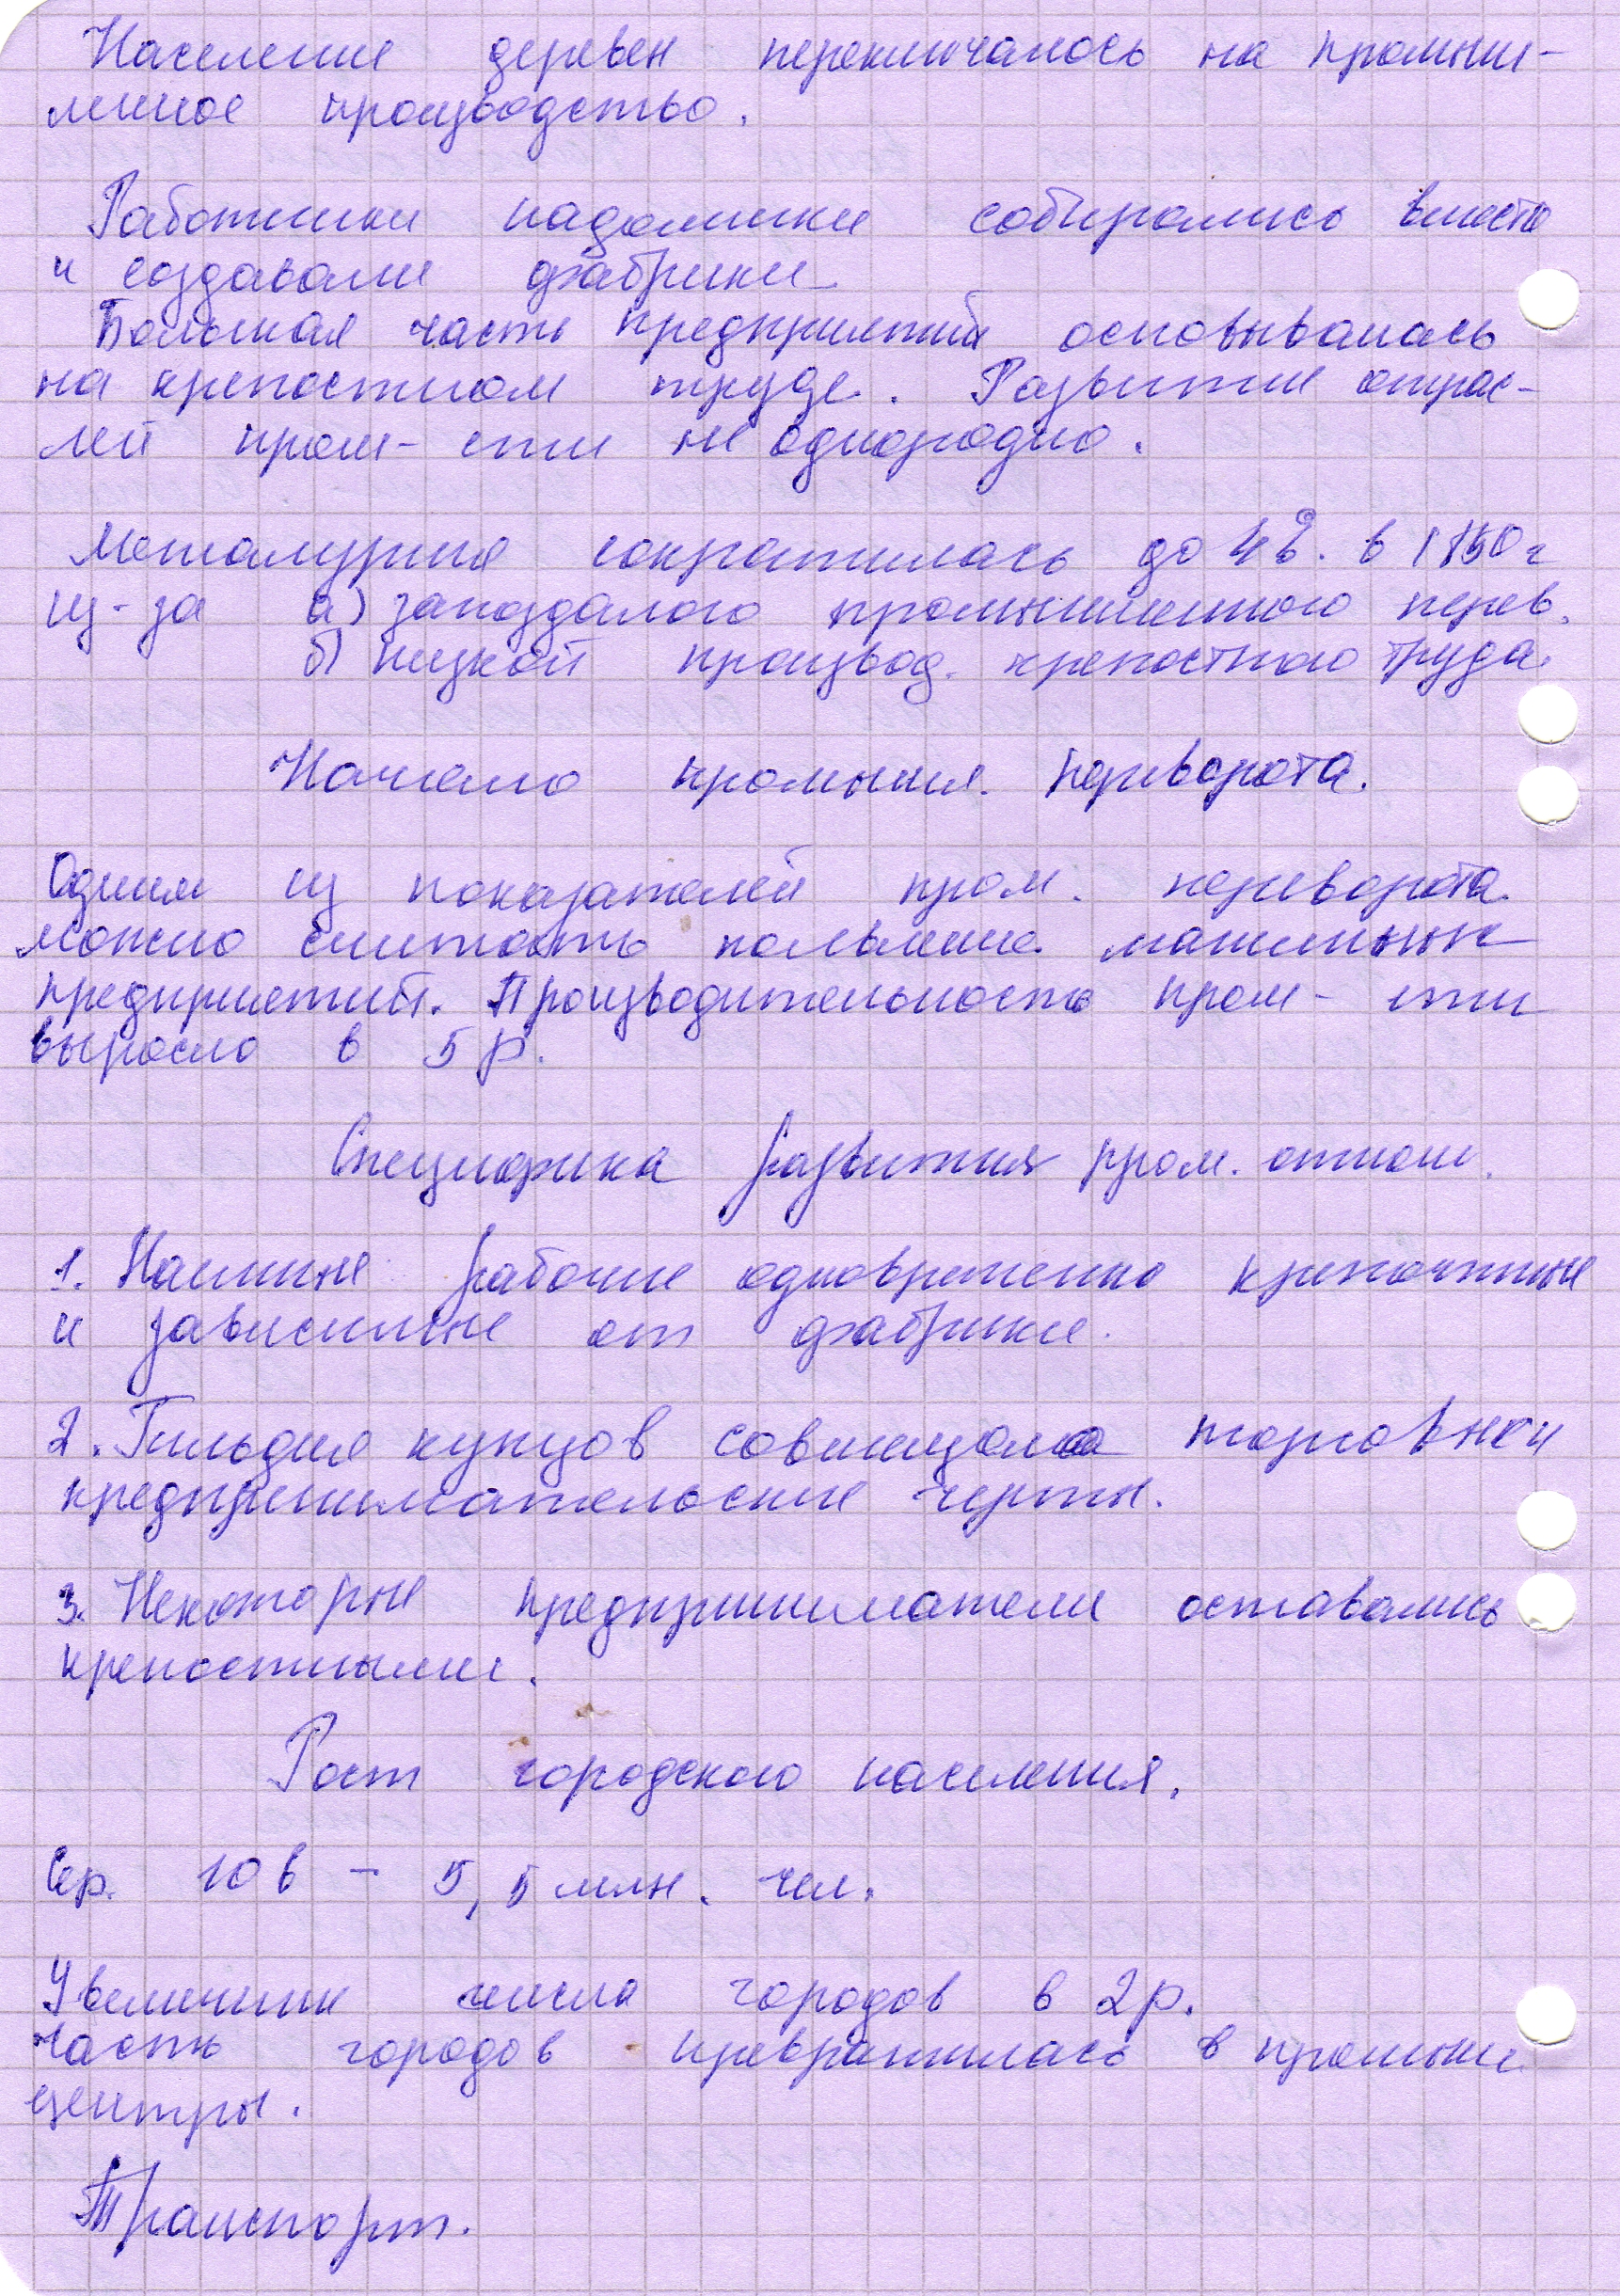 Население деревен переключалось на промыш-
ленное производство.
Работники надомники собирались вместе
и создавали фабрики
Большая часть предприятий основывалась
на крепостном труде. Развитие отрас-
лей пром-сти не однородно.
Металургия сократилась до 4%. в 1850 г
из-за а) запоздалого промышленного перев.
б) низкой производ. крепостного труда.
Начало промышл. переворота.
Одним из показателей пром. переворота
можно считать появление машинных
предприятий. Производительность пром-сти
выросло в 5 р.
Специфика развития пром. отнош.
1. Наемные рабочие одновременно крепостные
и зависимые от фабрики.
2. Гильдия купцов совмещала торговлю и
предпринимательские черты.
3. Некоторые предприниматели оставались
крепостными.
Рост городского населения.
Сер. 10 в - 5,5 млн. чел.
Увеличение числа городов в 2 р.
часть городов превратилась в промышл.
центры.
Транспорт.